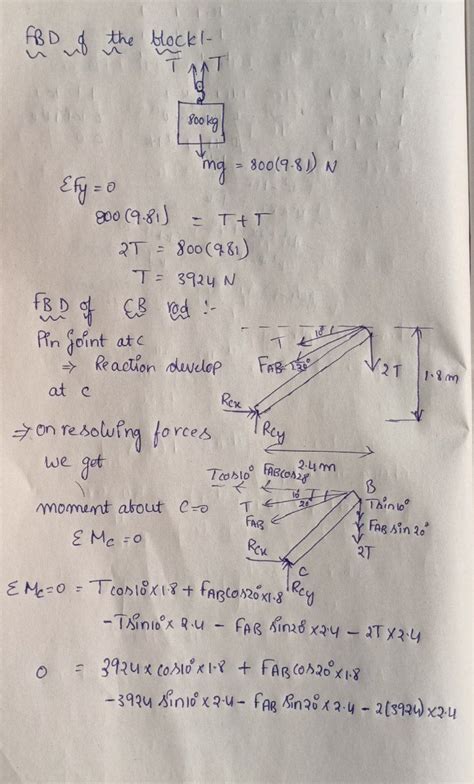 FBD of the block:-
T T
800kg
mg = 800(9.81) N
ΣFy = 0
800(9.81) = T+T
2T = 800(9.81)
T = 3924 N
FBD of CB rod :-
Pin joint at c
⇒ Reaction develop
at c
10°
T
FAB 20°
2T
1.8m
Rcx
Rcy
2.4m
⇒ on resolving forces
we get
moment about C=0
Σ Mc = 0
Tcos10° FABcos20°
B
T
10°
20°
FAB
Tsin10°
FAB sin20°
2T
Rcx
C
Rcy
ΣMc=0 = Tcos10°×1.8 + FABcos20°×1.8
-Tsin10°× 2.4 - FAB sin20°×2.4 - 2T×2.4
0 = 3924×cos10°×1.8 + FABcos20°×1.8
-3924 sin10°×2.4 - FAB sin20°×2.4 - 2(3924)×2.4